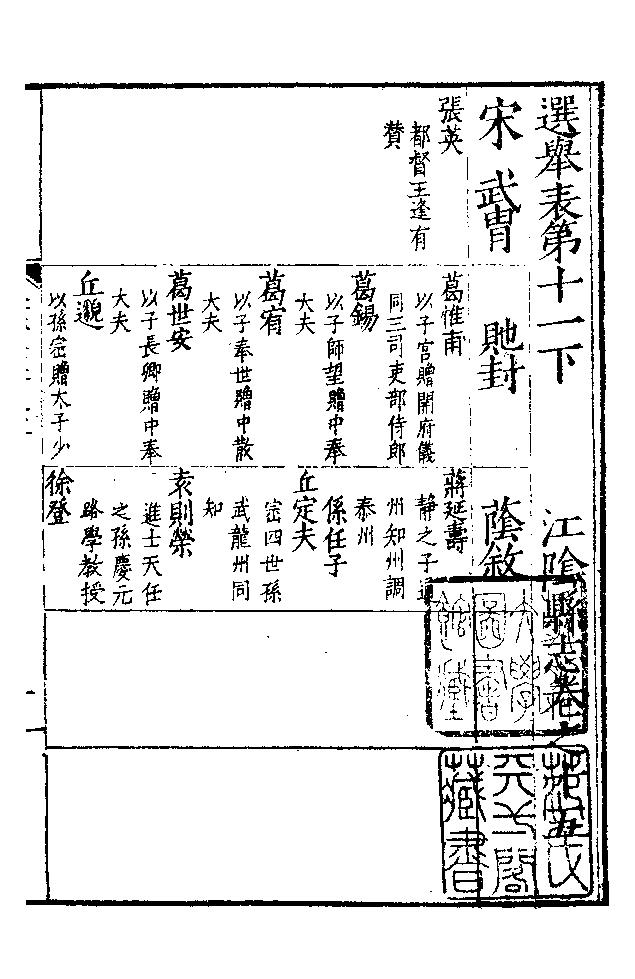 選舉表第十一下 江陰縣志卷之十五
宋 武冑 貤封 蔭敘
張英
都督王逢有
贊
葛惟甫
以子宮贈開府儀
同三司吏部侍郎
葛錫
以子師望贈中奉
大夫
葛宥
以子奉世贈中散
大夫
葛世安
以子長卿贈中奉
大夫
丘邈
以孫崈贈太子少
蔣延壽
静之子通
州知州調
泰州
係任子
丘定夫
崈四世孫
武龍州同
知
袁則榮
進士天任
之孫慶元
路學教授
徐登
大學
圖書
館藏
范氏
天一閣
藏書